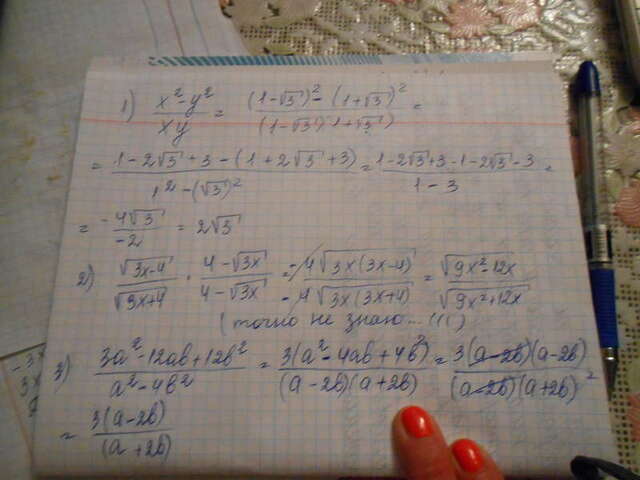 1) (x² - y²)/(xy) = ((1-√3)² - (1+√3)²)/((1-√3)(1+√3)) =
= (1-2√3+3-(1+2√3+3))/(1²-(√3)²) = (1-2√3+3-1-2√3-3)/(1-3) =
= (-4√3)/(-2) = 2√3
2) √(3x-4)/√(9x+4) · (4-√3x)/(4-√3x) = (-4√(3x(3x-4)))/(-4√(3x(3x+4))) = √(9x²-12x)/√(9x²+12x)
(точно не знаю...(((()
3) (3a²-12ab+12b²)/(a²-4b²) = (3(a²-4ab+4b²))/((a-2b)(a+2b)) = (3(a-2b)(a-2b))/((a-2b)(a+2b)) =
= (3(a-2b))/((a+2b))
-3x
3x